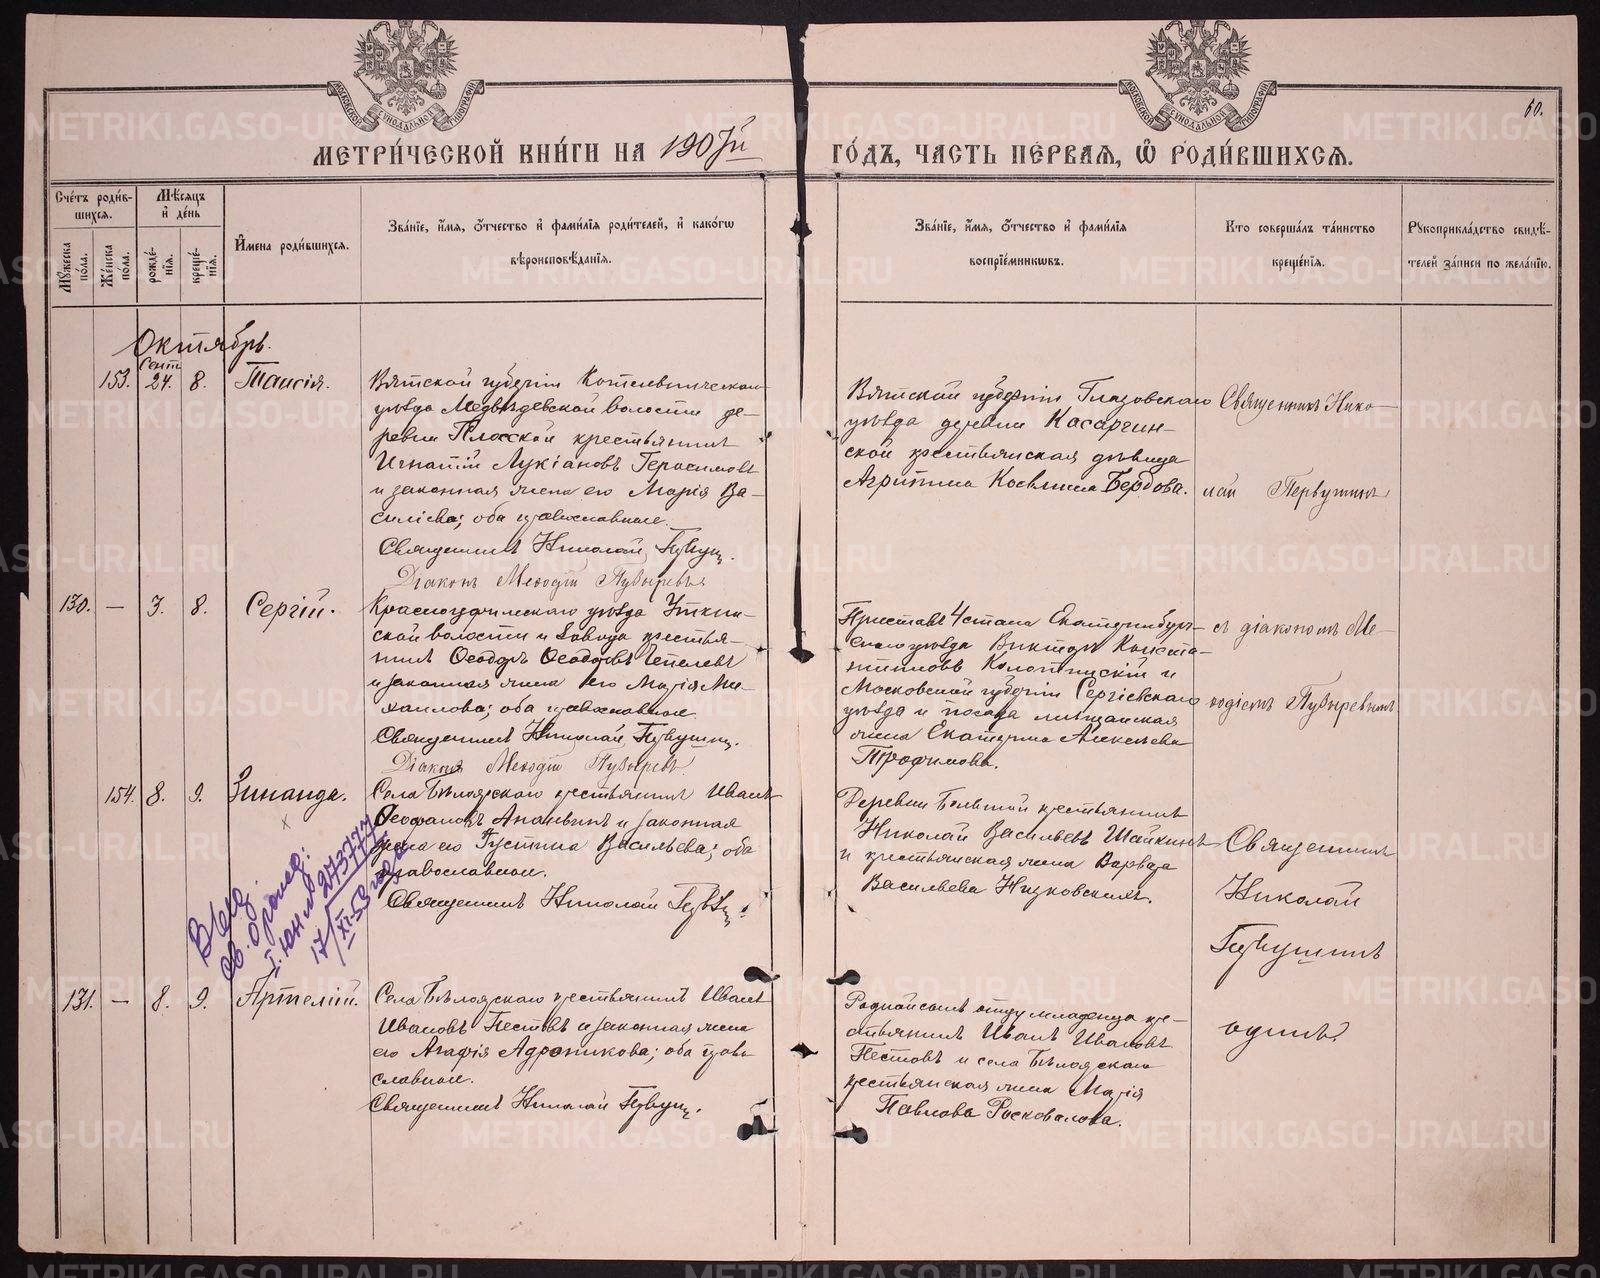 60.
МЕТРИ́ЧЕСКОЙ КНИ́ГИ НА 1907й ГО́ДЪ, ЧАСТЬ ПЕ́РВАЯ, Ѿ РОДИ́ВШИХСЯ.
Счетъ роди́в-
шихся.
Мѣсяцъ
и де́нь
Мꙋжеска
по́ла.
Же́нска
по́ла.
рожде́-
нїя.
креще́-
нїя.
И҆мена роди́вшихся.
Зва́нїе, и҆́мя, ѻ҆́тчество и҆ фами́лїя роди́телей, и҆ како́гѡ
вѣроисповѣ́данїя.
Зва́нїе, и҆́мя, ѻ҆́тчество и҆ фами́лїя
воспрїе́мникѡвъ.
Кто соверша́лъ та́инство
креще́нїя.
Рꙋкоприкла́дство свидѣ́-
телей за́писи по жела́нїю.
Октябрь.
153.
Сент.
24.
8.
Таисія.
Вятской губерніи Котельническаго
уѣзда Медвѣдевской волости де-
ревни Плоской крестьянинъ
Игнатій Лукіановъ Герасимовъ
и законная жена его Марія Ва-
силіева; оба православные.
Священникъ Николай Первуш.
Діаконъ Меѳодій Пузыревъ
Вятской губерніи Глазовскаго
уѣзда деревни Касаргин-
ской крестьянская дѣвица
Агрипина Бердова.
Священникъ Нико-
лай Первушинъ
130.
—
7.
8.
Сергій.
Красноуфимскаго уѣзда Уткин-
ской волости и завода крестья-
нинъ Ѳеодоръ Ѳеодоровъ Чепелевъ
и законная жена его Марія Ми-
хаилова; оба православные.
Священникъ Николай Первушин.
Діаконъ Меѳодій Пузыревъ
Приставъ 4 стана Екатеринбург-
скаго уѣзда Викторъ Конста-
нтиновъ и
Московской губерніи Сергіевскаго
уѣзда и посада мѣщанская
жена Екатерина Алексѣева
Трофимова.
съ діакономъ Ме-
ѳодіемъ Пузыревымъ
154.
8.
9.
Зинаида.
Села Бѣлоярскаго крестьянинъ Иванъ
Ѳеофановъ и законная
жена его Густина Васильева; оба
православные.
Священникъ Николай Перв.
Деревни Большой крестьянинъ
Николай Васильевъ Шайкинъ
и крестьянская жена Варвара
Васильева Низковскихъ.
Священникъ
Николай
Первушинъ
один.
I-ЮН № 273777
17/XI-53 года
131.
—
8.
9.
Артемій.
Села Бѣлоярскаго крестьянинъ Иванъ
Ивановъ Пестовъ и законная жена
его Агафія Адроникова; оба право-
славные.
Священникъ Николай Первуш.
Родной отцу младенца кре-
стьянинъ Иванъ Ивановъ
Пестовъ и села Бѣлоярскаго
крестьянская жена Марія
Павлова Росковалова.